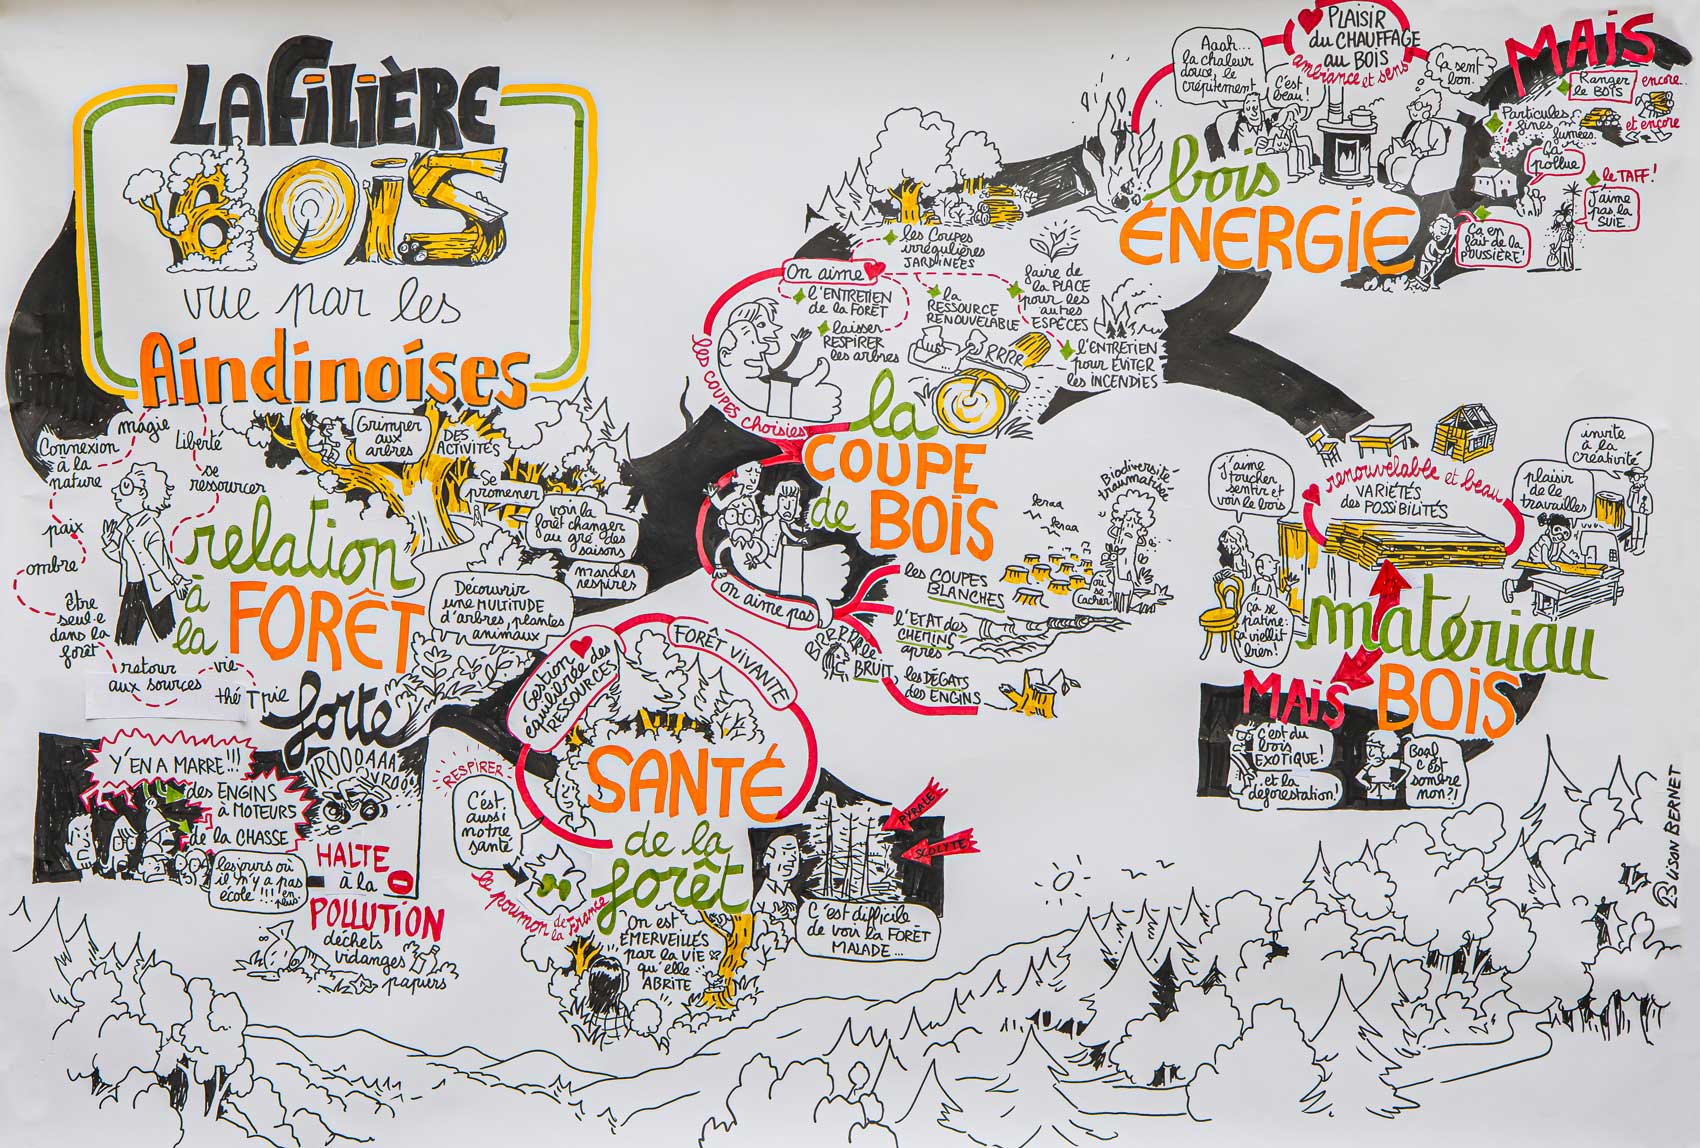 LA FILIÈRE
BOIS
vue par les
Aindinoises
magie
Connexion
à la
nature
liberté
se
ressourcer
paix
ombre
être
seul·e
dans la
forêt
retour
aux sources
vie
théTrie
relation
à
la
FORÊT
forte
Grimper
aux
arbres
DES
ACTIVITÉS
Se
promener
voir la
forêt changer
au gré des
saisons
marches
respires
Découvrir
une MULTITUDE
d'arbres, plantes
animaux
Y'EN A MARRE!!!
des ENGINS
à MOTEURS
de la CHASSE
les jours où
il n'y a pas
école!!! en
plus
VROOOAAA
VROO
HALTE
à la
POLLUTION
déchets
vidanges
papiers
Gestion
équilibrée des
RESSOURCES
FORÊT VIVANTE
RESPIRER
C'est
aussi
notre
santé
le poumon de
la France
SANTÉ
de la
forêt
On est
ÉMERVEILLÉS
par la VIE
qu'elle
ABRITE
PYRALE
SCOLYTE
C'est difficile
de voir la FORÊT
MALADE...
les COUPES choisies
On aime
l'ENTRETIEN
de la FORÊT
laisser
RESPIRER
les arbres
les Coupes
irrégulières
JARDINÉES
la
RESSOURCE
RENOUVELABLE
faire de
la PLACE
pour les
autres
ESPÈCES
l'ENTRETIEN
pour ÉVITER
les INCENDIES
RRRR
la
COUPE
de BOIS
on aime pas
les COUPES
BLANCHES
l'ÉTAT des
CHEMINS
après
le
BRUIT
les DÉGATS
des ENGINS
Biodiversité
traumatisée
où
se
cacher
Aaah...
la chaleur
douce, le
crépitement
C'est
beau!
PLAISIR
du CHAUFFAGE
au BOIS
ambiance et sens
Ça sent
bon.
bois
ÉNERGIE
MAIS
Ranger
le BOIS
encore
et encore
Particules
fines,
fumées.
Ça
pollue
le TAFF!
J'aime
pas la
SUIE
Ça en
fait de la
POUSSIÈRE!
J'aime
toucher
sentir et
voir le bois
renouvelable et beau
VARIÉTÉS
des POSSIBILITÉS
plaisir
de le
travailler
invite
à la
créativité
Ça se
patine.
ça vieillit
bien!
matériau
BOIS
MAIS
C'est du
bois
EXOTIQUE!
et la
déforestation!
Boaf
c'est
sombre
non?!
BUISSON BERNET